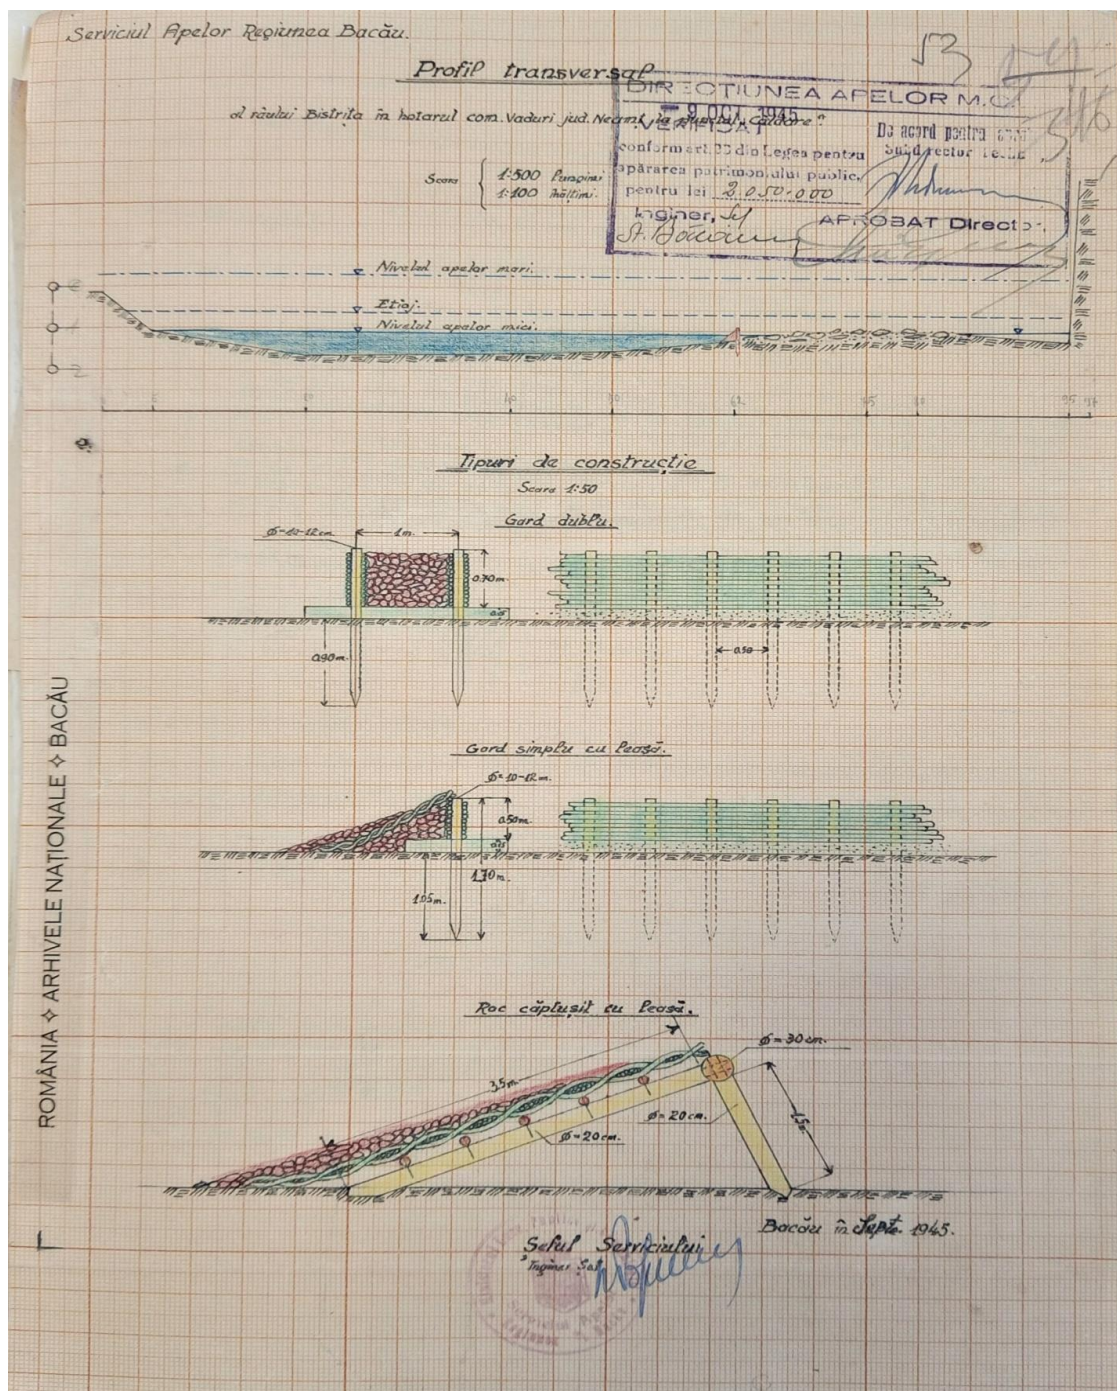 Serviciul Apelor Regiunea Bacău.
53
Profil transversal
al râului Bistrița în hotarul com. Vaduri jud. Neamț, la punctul „Căldare”
Scara
1:500 lungimi
1:100 înălțimi
DIRECȚIUNEA APELOR M.C.
- 9 OCT. 1945
VERIFICAT
conform art. 33 din Legea pentru
apărarea patrimoniului public,
pentru lei 2.050.000
Inginer,
De acord pentru
Subdirector
APROBAT Director,
Nivelul apelor mari.
Etiaj.
Nivelul apelor mici.
Tipuri de construcție
Scara 1:50
Gard dublu.
Ø=10-12 cm.
1m.
0.70m.
0.90m.
0.50
Gard simplu cu leasă.
Ø=10-12 m.
0.50m.
1.70m.
1.05m.
Roc căptușit cu leasă.
3,5m.
Ø=30 cm.
Ø=20 cm.
Ø=20 cm.
1,50
Bacău în Septe. 1945.
Șeful Serviciului
Inginer Șef
ROMÂNIA ✧ ARHIVELE NAȚIONALE ✧ BACĂU